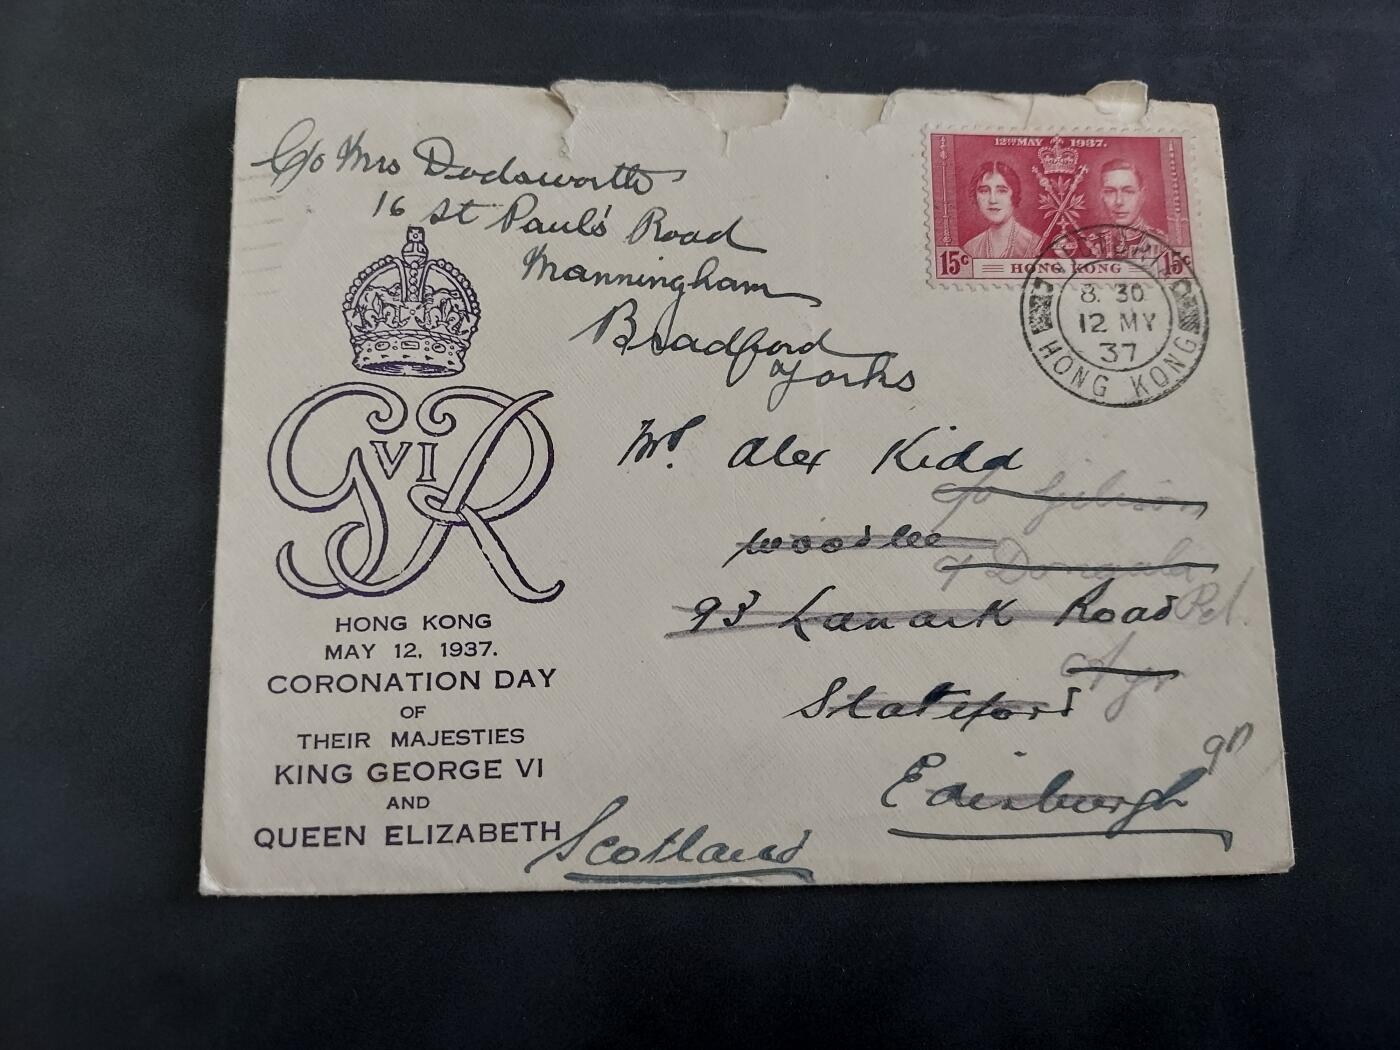 C/o Mrs Dodsworth
16 St Paul's Road
Manningham
Bradford
Yorks
12TH MAY 1937.
15c HONG KONG 15c
8. 30
12 MY
37
HONG KONG
Mr. Alex Kidd
c/o Gibson
Woodlee
9 Dongola
93 Lanark Road Rd.
Ayr
Slateford
Edinburgh
Scotland
G VI R
HONG KONG
MAY 12, 1937.
CORONATION DAY
OF
THEIR MAJESTIES
KING GEORGE VI
AND
QUEEN ELIZABETH